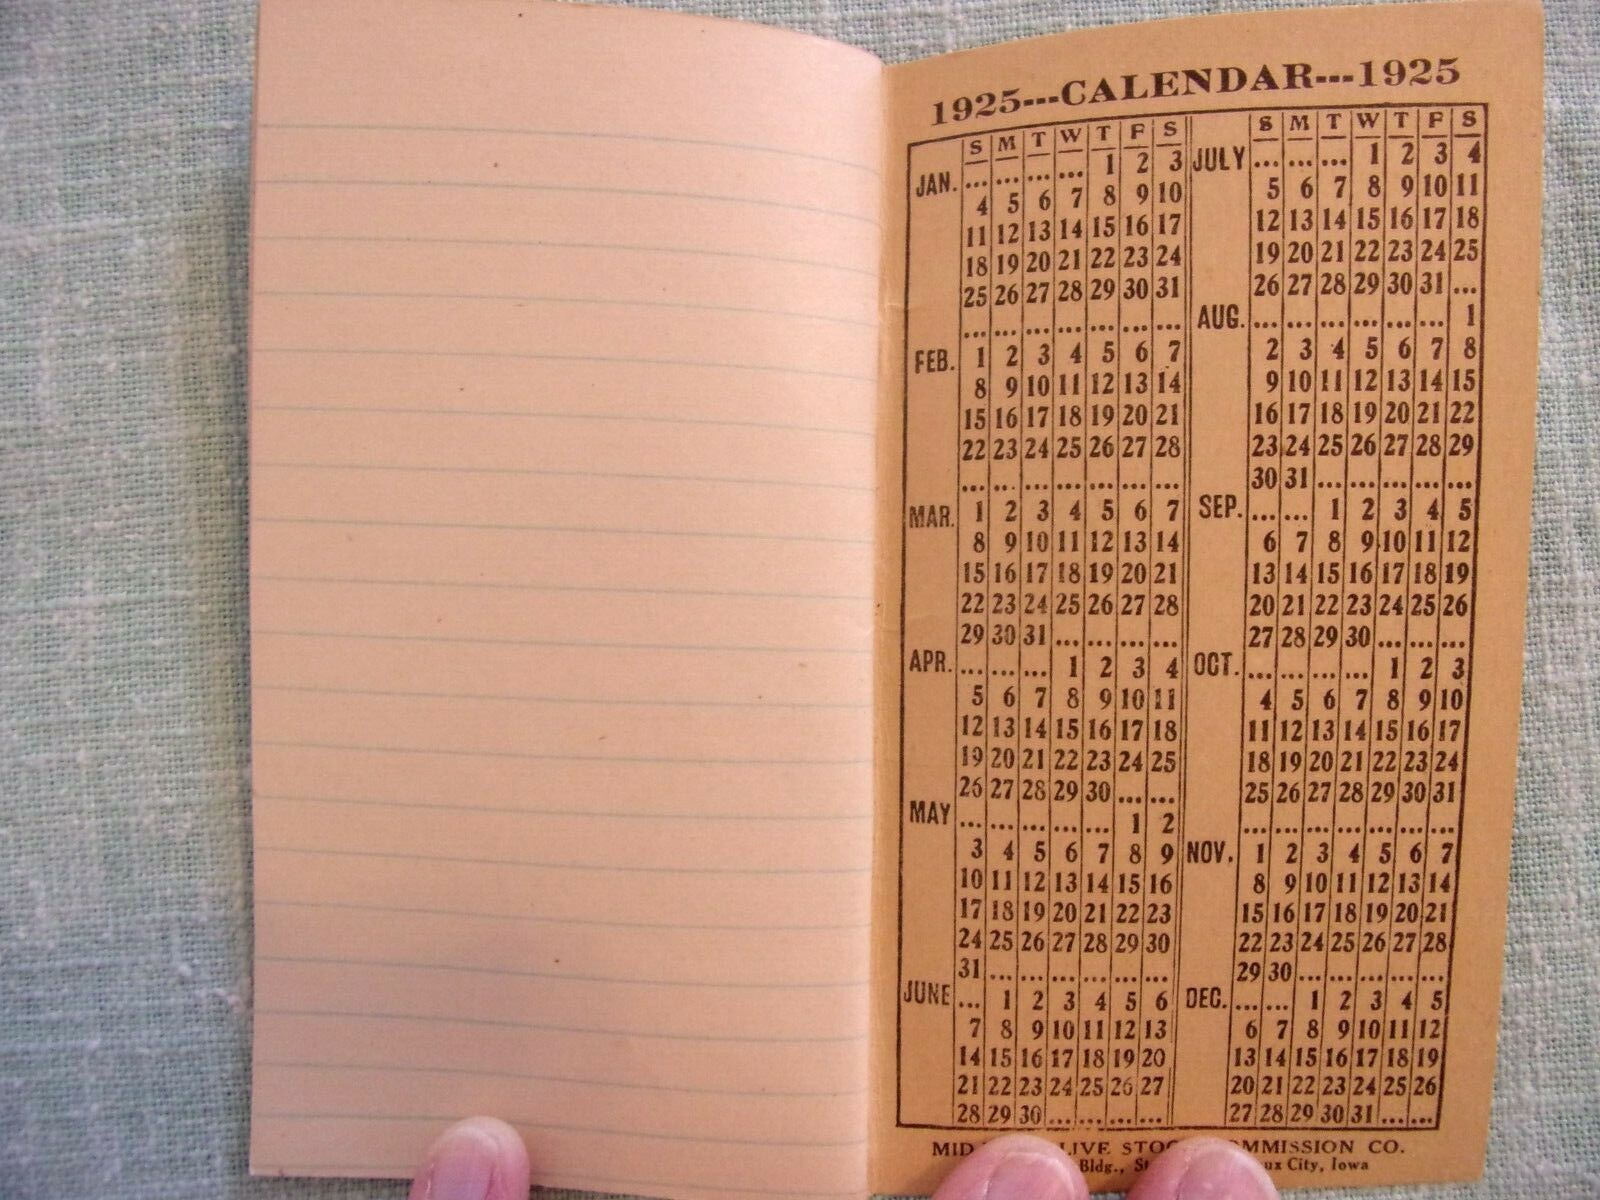 1925---CALENDAR---1925
S M T W T F S
JAN. ... ... ... ... 1 2 3
4 5 6 7 8 9 10
11 12 13 14 15 16 17
18 19 20 21 22 23 24
25 26 27 28 29 30 31
... ... ... ... ... ... ...
FEB. 1 2 3 4 5 6 7
8 9 10 11 12 13 14
15 16 17 18 19 20 21
22 23 24 25 26 27 28
... ... ... ... ... ... ...
MAR. 1 2 3 4 5 6 7
8 9 10 11 12 13 14
15 16 17 18 19 20 21
22 23 24 25 26 27 28
29 30 31 ... ... ... ...
APR. ... ... ... 1 2 3 4
5 6 7 8 9 10 11
12 13 14 15 16 17 18
19 20 21 22 23 24 25
26 27 28 29 30 ... ...
MAY ... ... ... ... ... 1 2
3 4 5 6 7 8 9
10 11 12 13 14 15 16
17 18 19 20 21 22 23
24 25 26 27 28 29 30
31 ... ... ... ... ... ...
JUNE ... 1 2 3 4 5 6
7 8 9 10 11 12 13
14 15 16 17 18 19 20
21 22 23 24 25 26 27
28 29 30 ... ... ... ...
S M T W T F S
JULY ... ... ... 1 2 3 4
5 6 7 8 9 10 11
12 13 14 15 16 17 18
19 20 21 22 23 24 25
26 27 28 29 30 31 ...
AUG. ... ... ... ... ... ... 1
2 3 4 5 6 7 8
9 10 11 12 13 14 15
16 17 18 19 20 21 22
23 24 25 26 27 28 29
30 31 ... ... ... ... ...
SEP. ... ... 1 2 3 4 5
6 7 8 9 10 11 12
13 14 15 16 17 18 19
20 21 22 23 24 25 26
27 28 29 30 ... ... ...
OCT. ... ... ... ... 1 2 3
4 5 6 7 8 9 10
11 12 13 14 15 16 17
18 19 20 21 22 23 24
25 26 27 28 29 30 31
... ... ... ... ... ... ...
NOV. 1 2 3 4 5 6 7
8 9 10 11 12 13 14
15 16 17 18 19 20 21
22 23 24 25 26 27 28
29 30 ... ... ... ... ...
DEC. ... ... 1 2 3 4 5
6 7 8 9 10 11 12
13 14 15 16 17 18 19
20 21 22 23 24 25 26
27 28 29 30 31 ... ...
MID LIVE STOC MMISSION CO.
Bldg., St ux City, Iowa